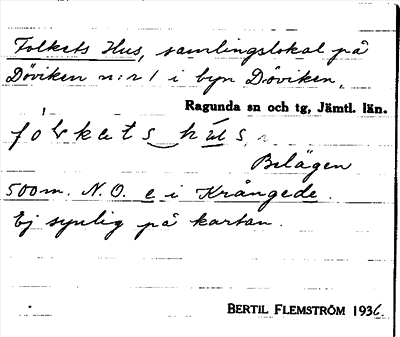 Folkets Hus, samlingslokal på
Döviken n:r 1 i byn Döviken,
Ragunda sn och tg, Jämtl. län.
fo'lkets hús,
Belägen
500m. N.O. e i Krångede.
Ej synlig på kartan.
BERTIL FLEMSTRÖM 1936.